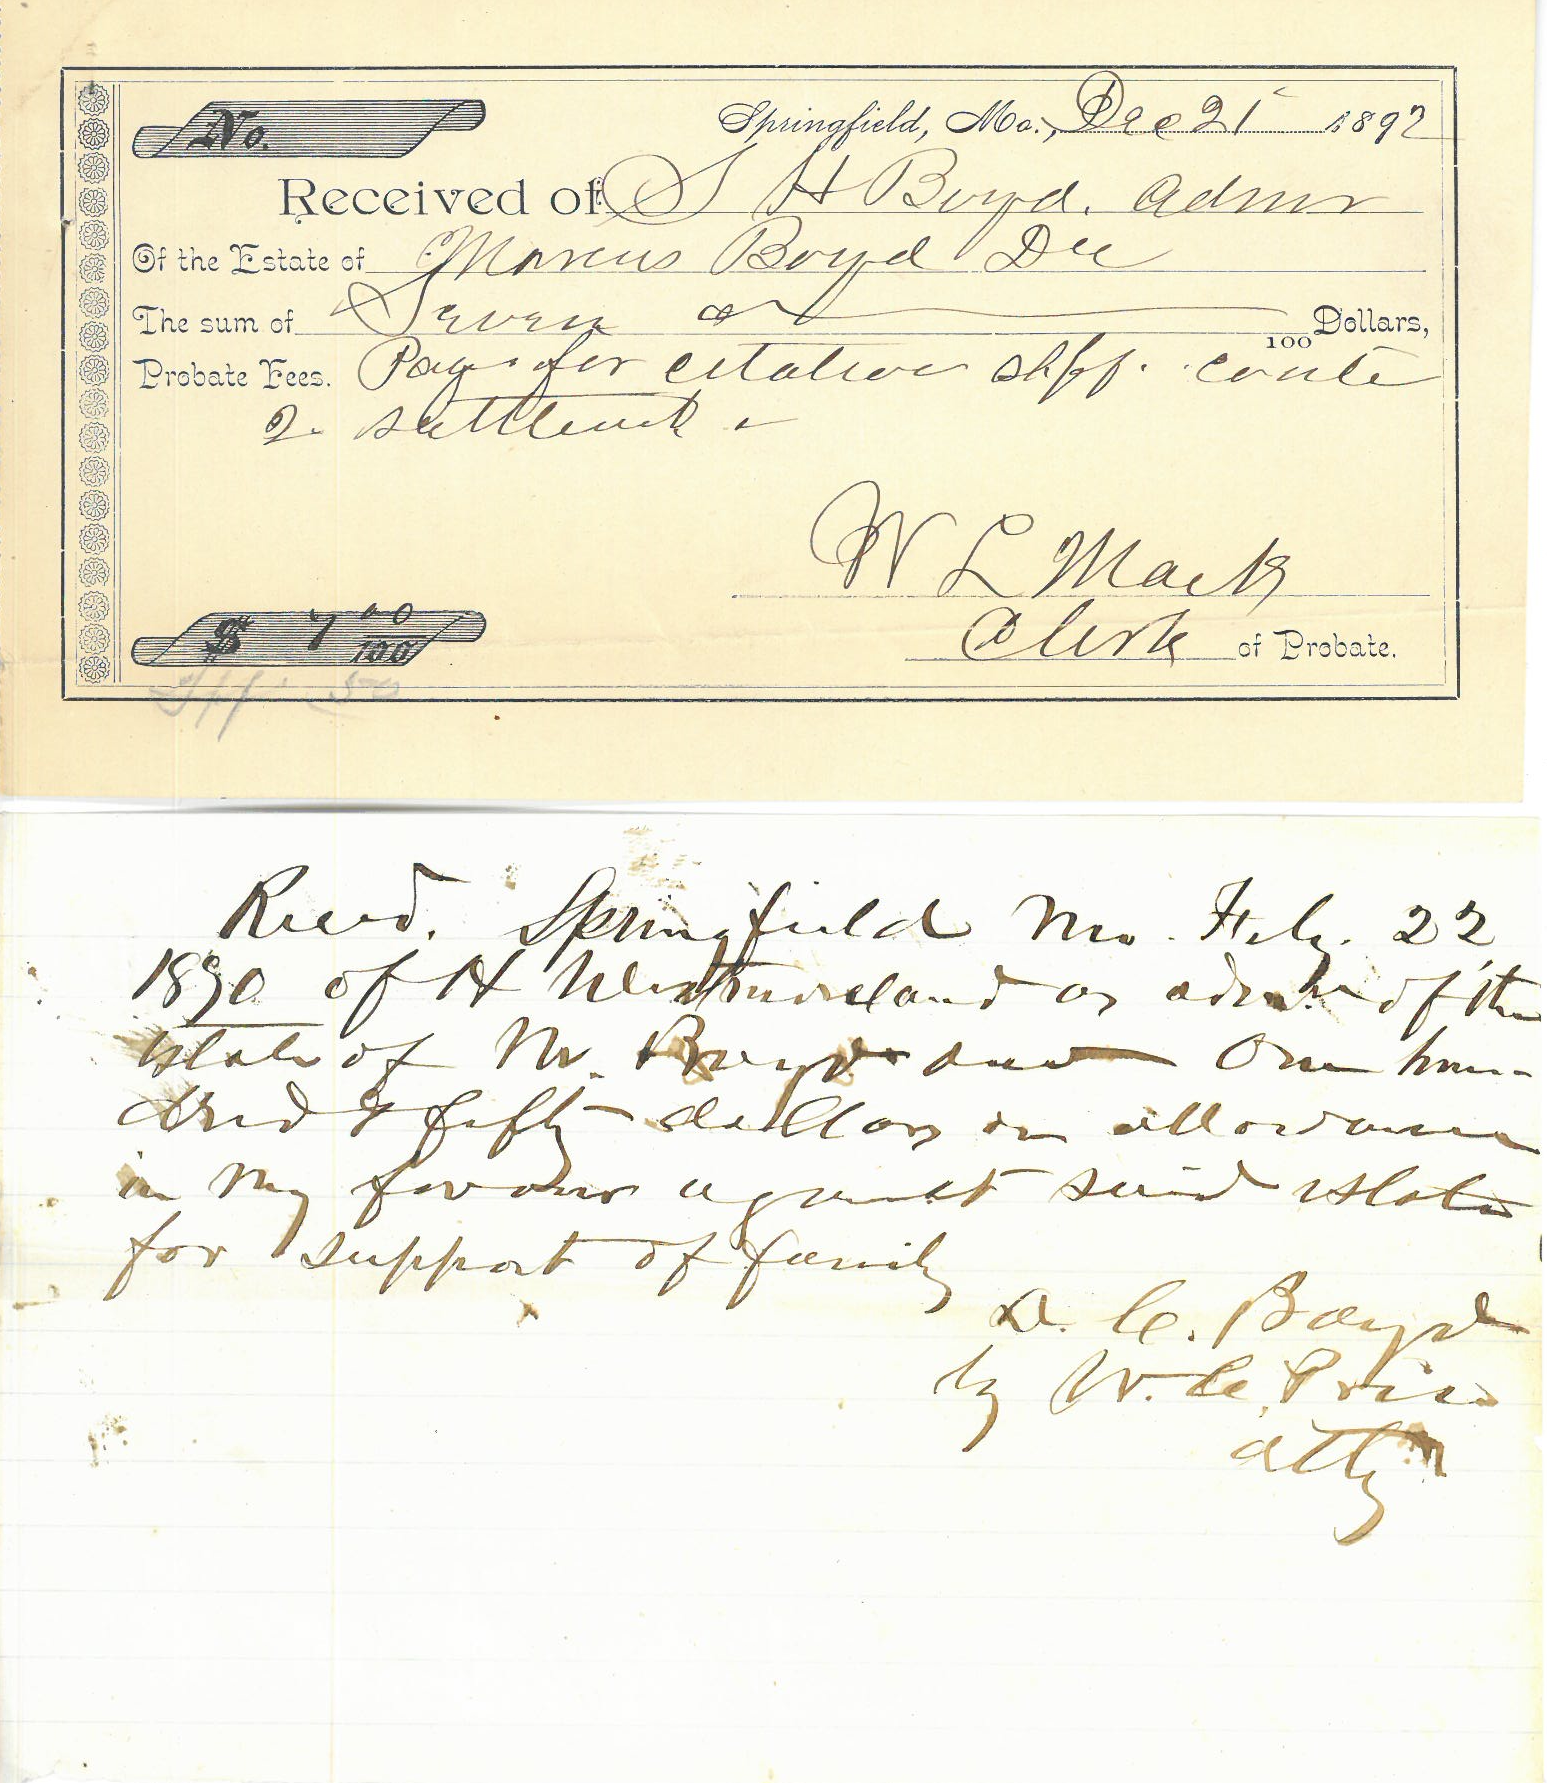 No.
Springfield, Mo., Dec 21 1892
Received of S H Boyd. Admr
Of the Estate of Marcus Boyd Dec
The sum of Seven Dollars,
100
Probate Fees. Pays for citation conte
2 settlemts
W L Mack
Clerk of Probate.
$ 7 00/100
Recd. Springfield Mo. Feby. 22
1890 of H Westmoreland as admr of the
estate of M. Boyd decd One hun-
dred & fifty dollars on allowance
in my favour against said estate
for support of family
D. C. Boyd
by W. C. Price
atty